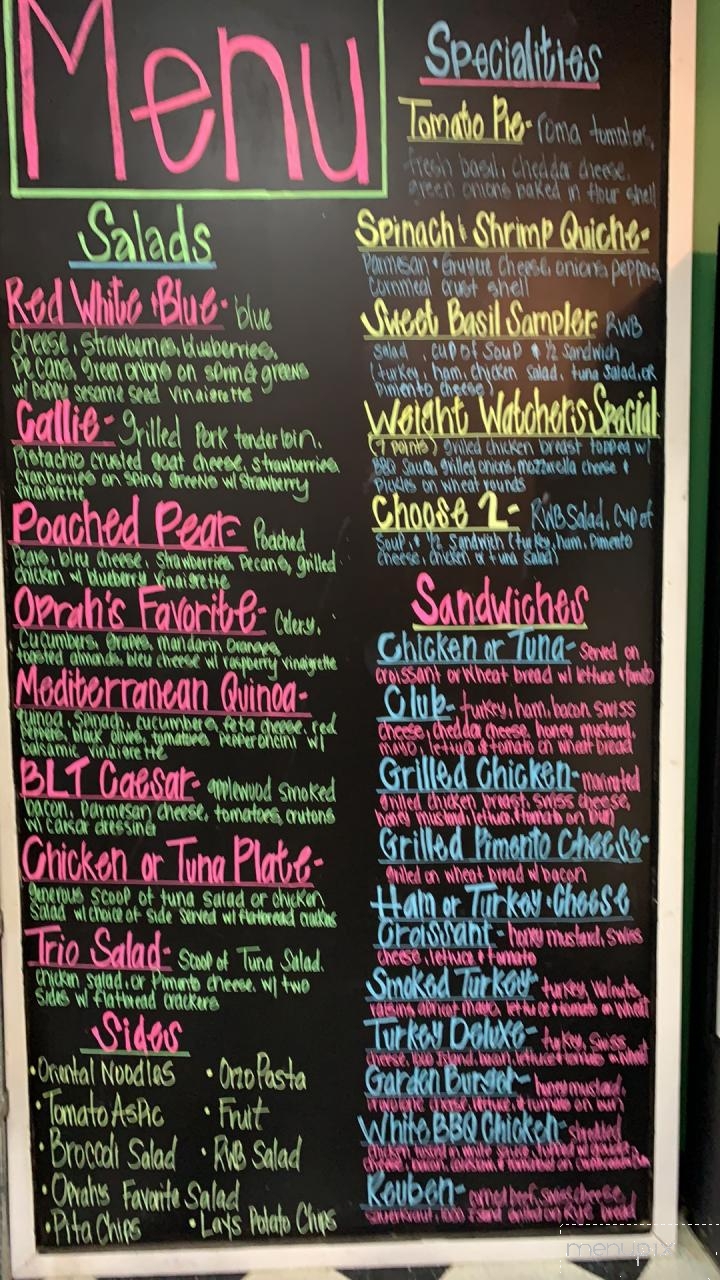 Menu
Salads
Red White & Blue- blue
cheese, strawberries, blueberries,
pecans, green onions on spring greens
w/ poppy sesame seed vinaigrette
Callie- Grilled Pork tenderloin,
Pistachio crusted goat cheese, strawberries,
cranberries on spring greens w/ strawberry
vinaigrette
Poached Pear- Poached
Pears, bleu cheese, strawberries, Pecans, grilled
chicken w/ blueberry vinaigrette
Oprah's Favorite- Celery,
Cucumbers, Grapes, mandarin oranges,
toasted almonds, bleu cheese w/ raspberry vinaigrette
Mediterranean Quinoa-
quinoa, spinach, cucumbers, feta cheese, red
peppers, black olives, tomatoes, pepperoncini w/
balsamic vinaigrette
BLT Caesar- applewood smoked
bacon, parmesan cheese, tomatoes, crutons
w/ caesar dressing
Chicken or Tuna Plate-
generous scoop of tuna salad or chicken
salad w/ choice of side served w/ flatbread crackers
Trio Salad- Scoop of Tuna Salad,
chicken salad, or Pimento cheese, w/ two
sides w/ flatbread crackers
Sides
• Oriental Noodles
• Orzo Pasta
• Tomato Aspic
• Fruit
• Broccoli Salad
• RWB Salad
• Oprah's Favorite Salad
• Pita Chips
• Lays Potato Chips
Specialities
Tomato Pie- roma tomatoes,
fresh basil, cheddar cheese,
green onions baked in flour shell
Spinach & Shrimp Quiche-
Parmesan & Gruyue cheese, onions, peppers,
cornmeal crust shell
Sweet Basil Sampler- RWB
salad, cup of soup & 1/2 sandwich
(turkey, ham, chicken salad, tuna salad, or
pimento cheese)
Weight Watchers Special
(7 points) grilled chicken breast topped w/
BBQ Sauce, grilled onions, mozzarella cheese &
pickles on wheat rounds
Choose 2- RWB Salad, Cup of
Soup, & 1/2 Sandwich (turkey, ham, Pimento
cheese, chicken or tuna salad)
Sandwiches
Chicken or Tuna- Served on
croissant or wheat bread w/ lettuce & tomato
Club- turkey, ham, bacon, swiss
cheese, cheddar cheese, honey mustard,
mayo, lettuce & tomato on wheat bread
Grilled Chicken- marinated
grilled chicken breast, swiss cheese,
honey mustard, lettuce & tomato on bun
Grilled Pimento Cheese-
grilled on wheat bread w/ bacon
Ham or Turkey & Cheese
Croissant- honey mustard, swiss
cheese, lettuce & tomato
Smoked Turkey- turkey, walnuts,
raisins, apricot mayo, lettuce & tomato on wheat
Turkey Deluxe- turkey, Swiss
cheese, 1000 island, bacon, lettuce & tomato on wheat
Garden Burger- honey mustard,
cheese, lettuce, & tomato on bun
White BBQ Chicken- shredded
chicken tossed in white sauce, topped w/
cheese, bacon,
Reuben- corned beef, swiss cheese,
sauerkraut, 1000 island grilled on rye bread
menupix